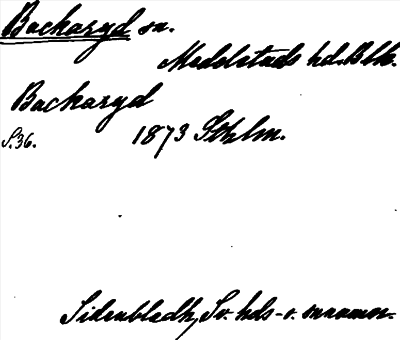 Backaryd sn.
Medelstads hd. Blk.
Backaryd
S.36. 1873 Sthlm.
Sidenbladh, Sv. hds- o. snnamn.